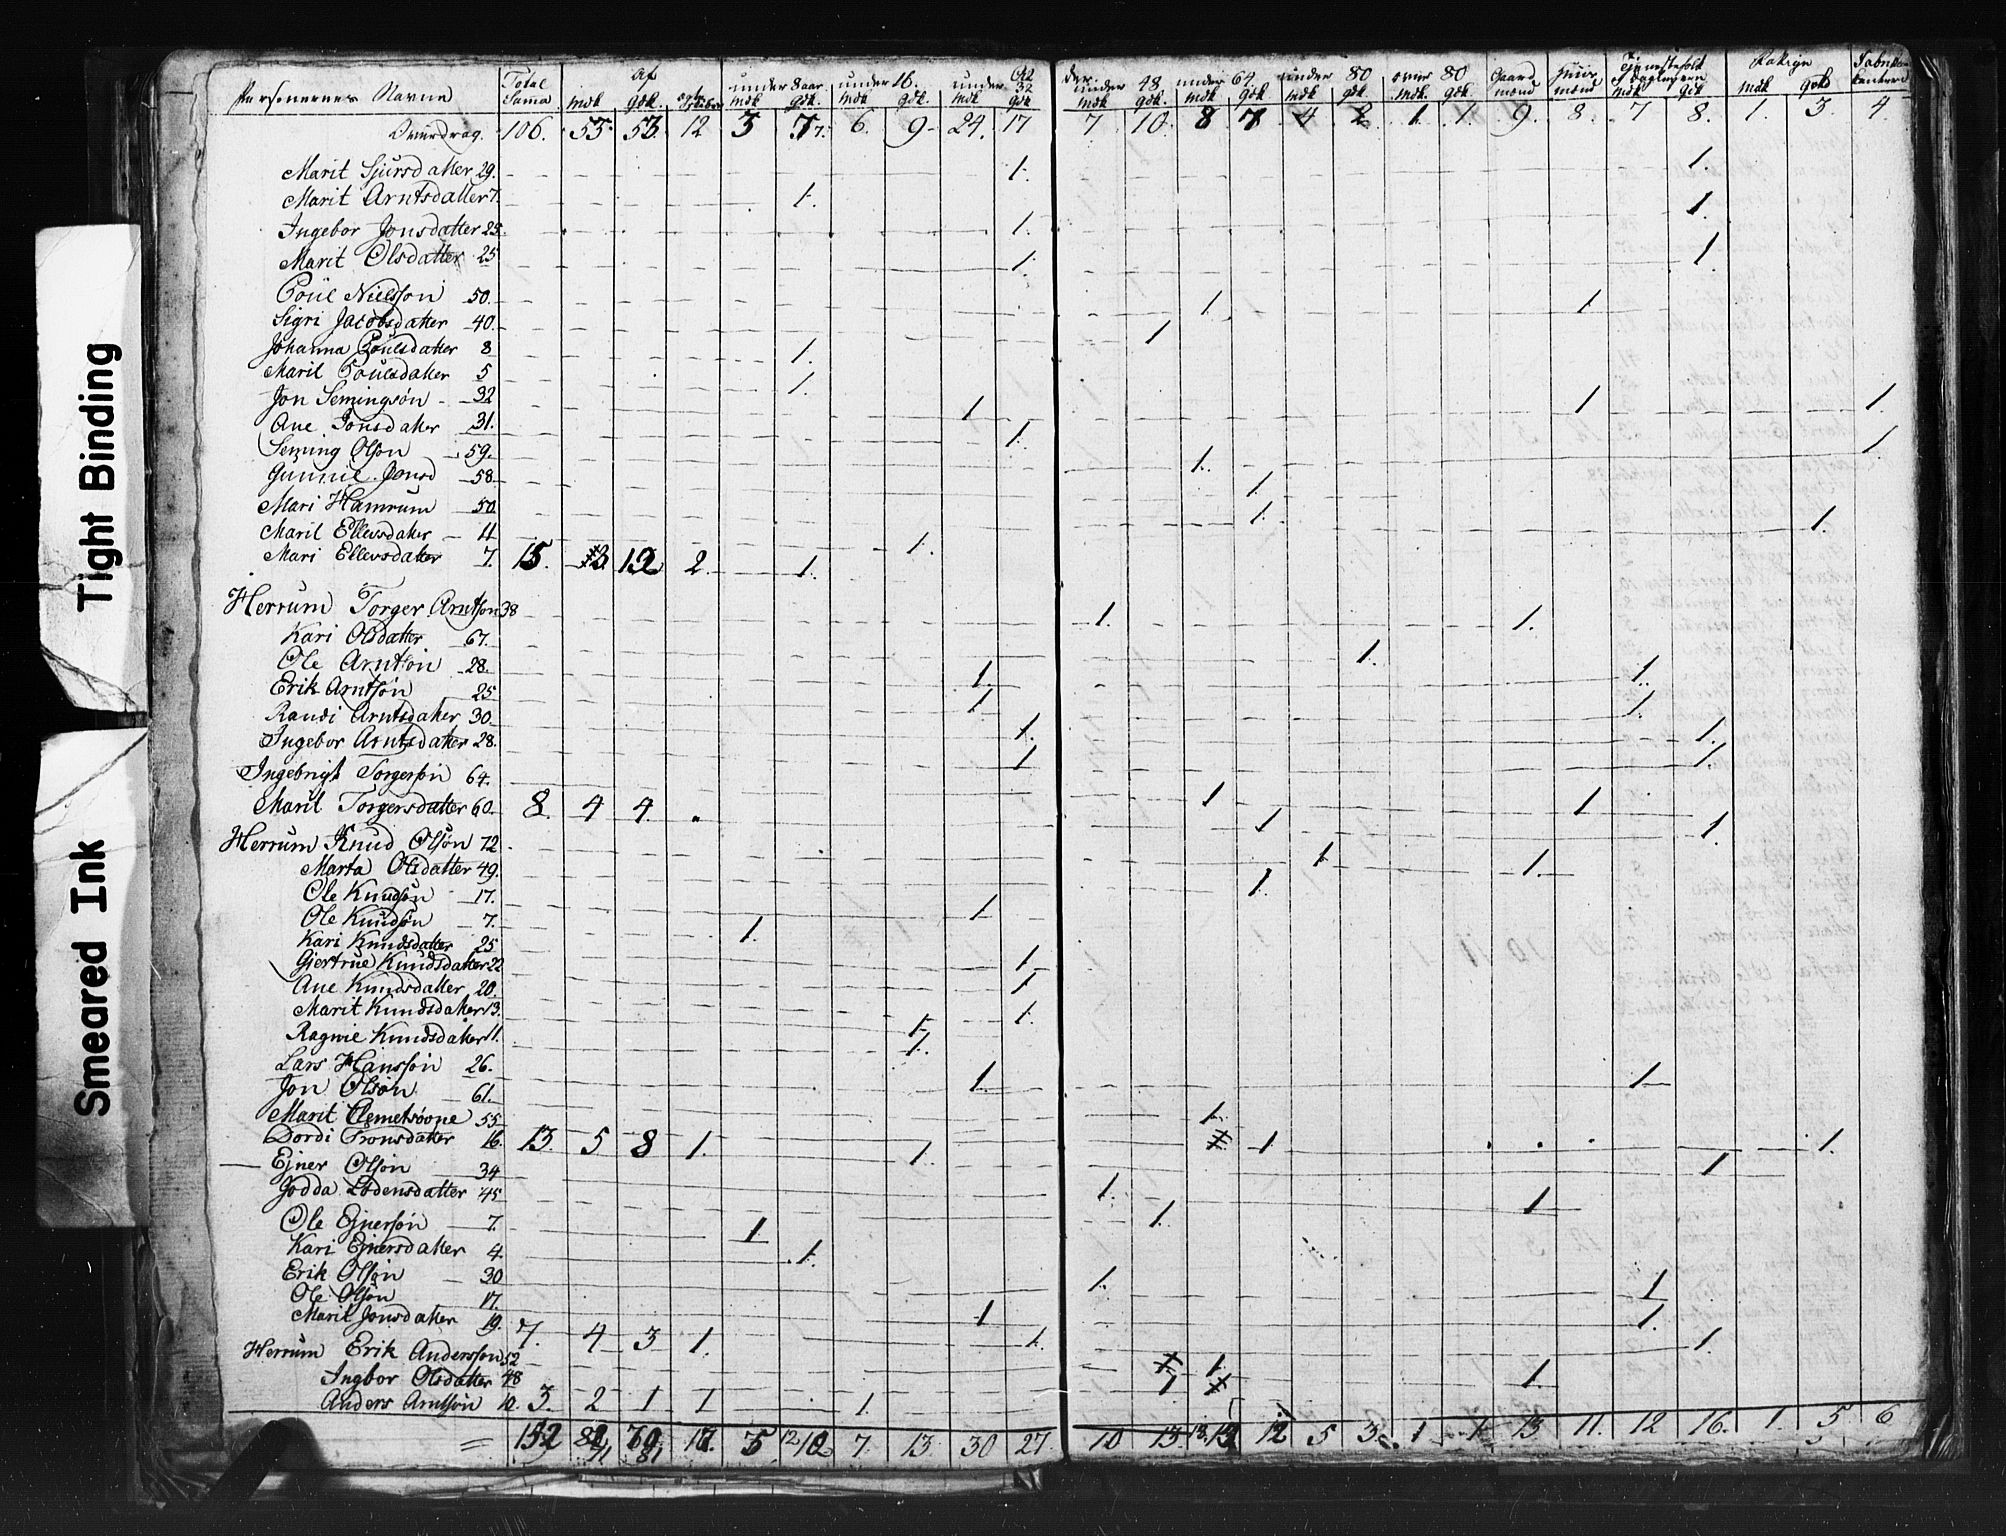 Tight Binding
Smeared Ink
Personernes Navne Total Suma Af under 8 aar under 16. under 32 under 48 under 64 under 80 over 80 Gaard mænd Huus mænd Tjenestefolk
mdk gdk. mdk gdk. mdk gdk. mdk gdk mdk. gdk. mdk. gdk. mdk gdk. mdk. gdk. mdk gdk mdk
106. 53 12 6. 9 24. 17 7 10. 8 1. 1. 9. 8. 7 8. 1. 3. 4.
Marit Sjursdatter 29. 1. 1.
Marit Arntsdatter 7. 1. 1.
Ingebor Jonsdatter 25. 1.
Marit Olsdatter 25 1. 1.
Poul Nielssøn 50. 1. 1.
Sigri Jacobsdatter 40. 1.
Johanna Poulsdatter 8 1.
Marit Poulsdatter 5 1.
Jon Semingsøn 32 1. 1. 1.
Ane Jonsdatter 31. 1.
Seming Olsøn 59. 1. 1.
Gunnil Jonsd 58 1.
Mari Hamrum 50. 1. 1.
Marit Ellevsdatter 11 1.
Mari Ellevsdatter 7. 15. 2. 1.
Herrum Torger Arntsøn 38 1. 1.
Kari Olsdatter 67. 1.
Ole Arntsøn 28. 1. 1.
Erik Arntsøn 25 1. 1.
Randi Arntsdatter 30. 1. 1.
Ingebor Arntsdatter 28. 1. 1.
Ingebrigt Torgersøn 64. 1. 1.
Marit Torgersdatter 60. 8. 4 4. 1. 1.
Herrum Knud Olsøn 72 1. 1.
Marta Olsdatter 49. 1.
Ole Knudsøn 17. 1.
Ole Knudsøn 7. 1.
Kari Knudsdatter 25 1.
Gjertrue Knudsdatter 22 1.
Ane Knudsdatter 20. 1.
Marit Knudsdatter 13. 1.
Ragnie Knudsdatter 11. 1.
Lars Hanssøn 26. 1. 1.
Jon Olsøn 61. 1.
Marit Clemetsøvne 55 1. 1.
Dordi Tronsdatter 16. 13. 5 8 1. 1. 1.
Ejner Olsøn 34 1. 1.
Jodda Lodensdatter 45 1.
Ole Ejnersøn 7. 1
Kari Ejnersdatter 4. 1.
Erik Olsøn 30 1. 1.
Ole Olsøn 17. 1. 1.
Marit Jonsdatter 19. 7. 4 3 1. 1. 1.
Herrum Erik Anderssøn 52 1. 1.
Ingbor Olsdatter 48 1
Anders Arntsøn 10. 3. 2 1 1 1.
= 152 7. 13. 30 27. 10 13. 12 5 3. 1 1 13 11. 12 16. 1. 5 6
81